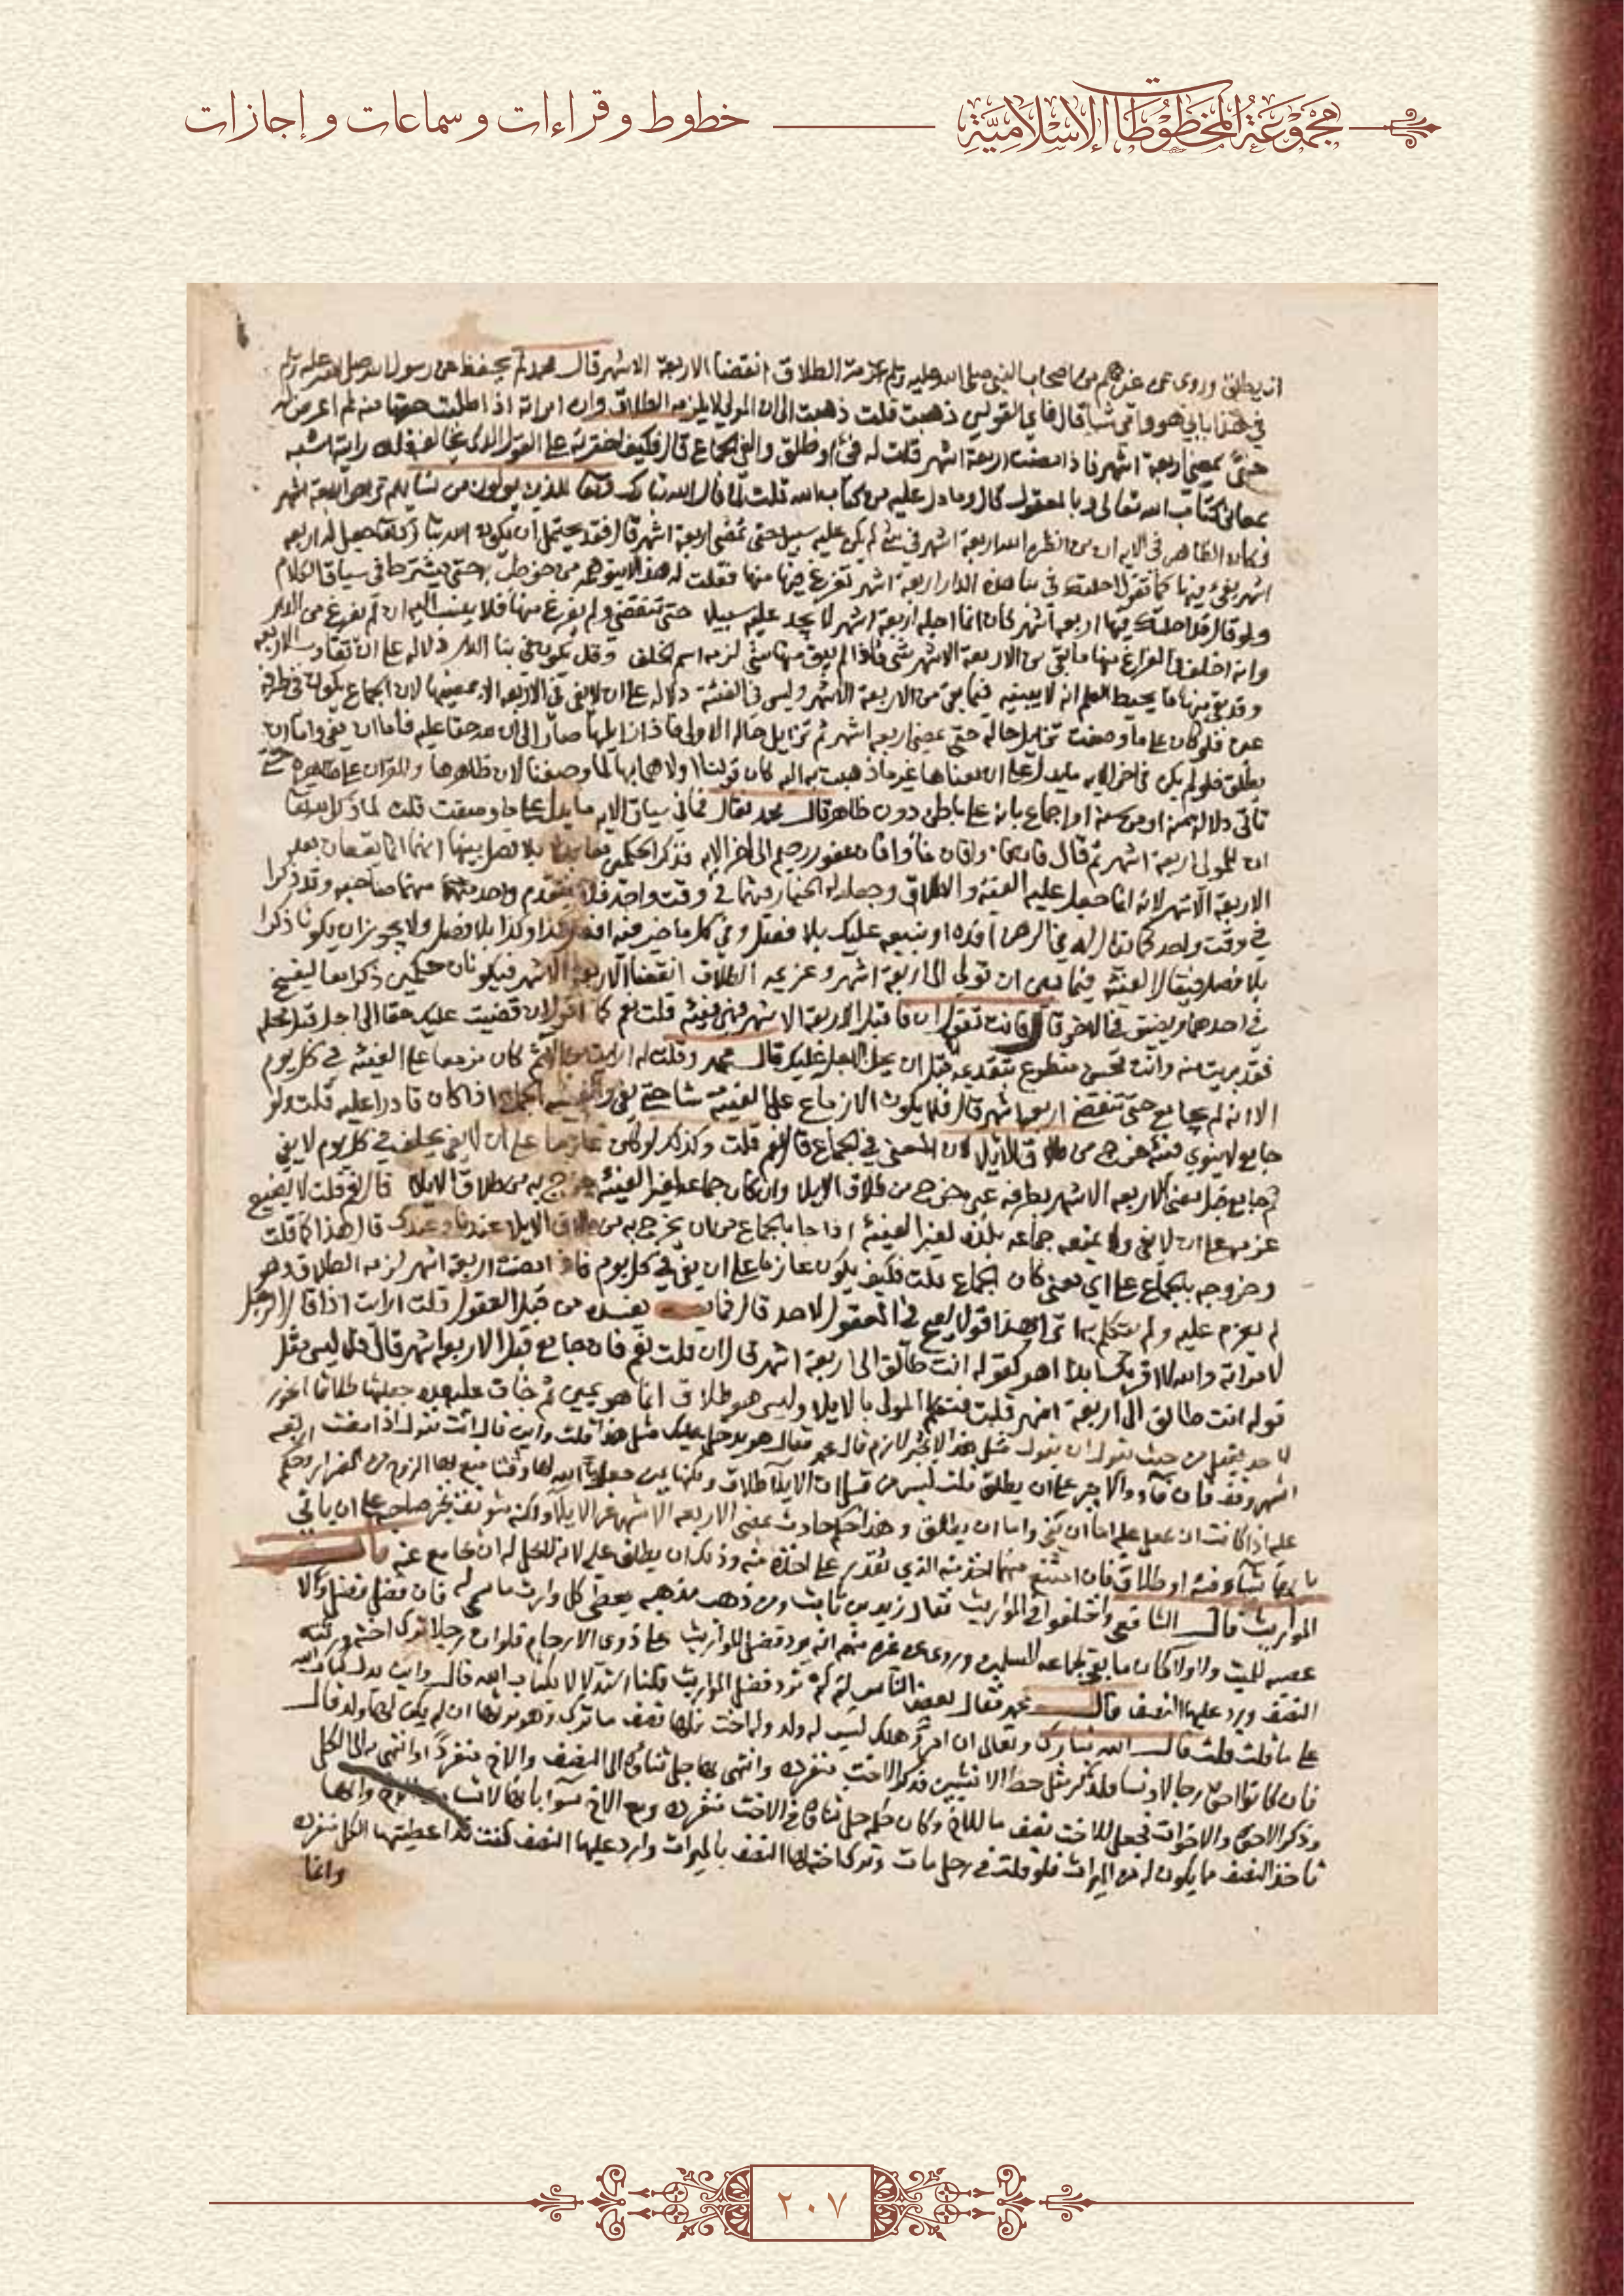 مجموعة المخطوطات الإسلامية
خطوط وقراءات وسماعات وإجازات
ان يطلق وروي عن غيرهم من اصحاب النبي صلى الله عليه وسلم عزيمة الطلاق انقضا الاربعة الاشهر قال محمد لم يحفظ عن رسول الله صلى الله عليه وسلم
في هذا بابي هو وامي شيا قال فاي القولين ذهبت قلت ذهبت الى ان المولي لا يلزمه الطلاق وان امراته اذا طلبت حقها منه لم اعرض له
حتى يمضي اربعة اشهر فاذا مضت اربعة اشهر قلت له فئ او طلق والفئ الجماع قال فكيف اخترته على القول الذي يخالفه قلت رايته اشبه
بمعاني كتاب الله تعالى وبالمعقول قال وما دل عليه من كتاب الله قلت لما قال الله تبارك وتعالى للذين يولون من نسايهم تربص اربعة اشهر
فكان الظاهر في الايه ان من انظره الله اربعة اشهر في شي لم يكن عليه سبيل حتى تمضي اربعة اشهر قال فقد يحتمل ان يكون الله تبارك وتعالى جعل له اربعه
اشهر يفئ فيها كما تقول اجلتك في بنا هذه الدار اربعة اشهر تفرغ فيها منها فقلت له هذا لا يتوهمه من خوطب به حتى يشترط في سياق الكلام
ولو قال قد اجلتك فيها اربعة اشهر كان انما اجله اربعة اشهر لا يجد عليه سبيلا حتى تنقضي ولم يفرغ منها فلا ينسب اليه ان لم يفرغ من الدار
وانه اخلف في الفراغ منها ما بقي من الاربعة الاشهر شي فاذا لم يبق منها شي لزمه اسم الخلف وقد يكون في بنا الدار دلاله على ان تقارب الاربعه
وقد بقي منها ما يحيط العلم انه لا يبنيه فيما بقي من الاربعة الاشهر وليس في الفئة دلاله على ان لا يفئ في الاربعه الا بمضيها لان الجماع يكون في طرفة
عين فلو كان على ما وصفت تزايل حاله حتى تمضي اربعة اشهر ثم تزايل حاله الاولى فاذا زايلها صار الى ان لله حقا عليه فاما ان يفئ واما ان
يطلق فلو لم يكن في اخر الايه ما يدل على ان معناها غير ما ذهبت اليه كان قولنا اولاهما بها لما وصفنا لان ظاهرها والقران على ظاهره حتى
تاتي دلاله منه او من سنة او اجماع بانه على باطن دون ظاهر قال محمد فقال فما في سياق الايه ما يدل على ما وصفت قلت لما ذكر الله
ان للمولي اربعة اشهر ثم قال فان فاوا فان الله غفور رحيم الى اخر الايه فذكر الحكمين معا بلا فصل بينهما انهما انما يقعان بعد
الاربعة الاشهر لانه انما جعل عليه الفئة والطلاق وجعل له الخيار فيهما في وقت واحد فلا يتقدم واحد منهما صاحبه وقد ذكرا
في وقت واحد كما يقال له في الرهن افده او نبيعه عليك بلا فصل وفي كل ما خير فيه افعل كذا او كذا بلا فصل ولا يجوز ان يكونا ذكرا
بلا فصل فيقال الفئة فيما بين ان تولي الى اربعة اشهر وعزيمه الطلاق انقضا الاربعة الاشهر فيكونان حكمين ذكرا معا يفسح
في احدهما ويضيق في الاخر قال فانت تقول ان فا قبل الاربعة الاشهر فهي فيئه قلت نعم كما اقول ان قضيت عليك حقا الى اجل قبل محله
فقد بريت منه وانت محسن متطوع بتقديمه قبل ان يحل عليك قال محمد وقلت له ارايت كان مزمعا على الفيئه في كل يوم
الا انه لم يجامع حتى تنقضي اربعة اشهر قال فلا يكون الازماع على الفيئة شيا حتى يفئ والفيئه الجماع اذا كان قادرا عليه قلت ولو
جامع لا ينوي فيئه خرج من طلاق الايلا لان المعنى في الجماع قال نعم قلت وكذلك لو كان عازما على ان لا يفئ يحلف في كل يوم لا يفئ
ثم جامع قبل مضي الاربعه الاشهر بطرفه عين خرج من طلاق الايلا وان كان جماعه لغير الفيئه خرج به من طلاق الايلا قال نعم قلت لا يصنع
عزمه على ان لا يفئ ولا يمنعه جماعه بلذه لغير الفيئه اذا جا بالجماع من ان يخرج به من طلاق الايلا عندنا وعندك قال هذا كما قلت
وخروجه بالجماع على اي معنى كان الجماع قلت فكيف يكون عازما على ان يفئ في كل يوم فاذا مضت اربعة اشهر لزمه الطلاق وهو
لم يعزم عليه ولم يتكلم به اترى هذا قولا يصح في المعقول لاحد قال فما يفسده من قبل العقول قلت ارايت اذا قال الرجل
لامراته والله لا اقربك ابدا اهو كقوله انت طالق الى اربعة اشهر قال ان قلت نعم فان جامع قبل الاربعة اشهر قال فلا ليس مثل
قوله انت طالق الى اربعة اشهر قلت فتكلم المولي بالايلا وليس هو طلاق انما هو يمين ثم جات عليه مده جعلتها طلاقا ايجوز
لاحد يعقل من حيث يقول ان يقول مثل هذا الا بخبر لازم قال محمد فقال هو يدخل عليك مثل هذا قلت واين قال انت تقول اذا مضت اربعه
اشهر وقف فان فا والا جبر على ان يطلق قلت ليس من قبل ان الايلا طلاق ولكنها يمين جعل الله لها وقتا منع بها الزوج من الضرار وحكم
عليه اذا كانت ان جعل عليه اما ان يفئ واما ان يطلق وهذا حكم حادث بمضي الاربعه الاشهر غير الايلا ولكنه مؤتنف يجبر صاحبه على ان ياتي
بايهما شاء فئة او طلاق فان امتنع منهما اخذ منه الذي يقدر على اخذه منه وذلك ان يطلق عليه لانه لا يحل له ان يجامع عنه باب
المواريث قال الشافعي واختلفوا في المواريث فقال زيد بن ثابت ومن ذهب مذهبه يعطى كل وارث ما سمي له فان فضل فضل ولا
عصبه للميت ولا ولا كان ما بقي لجماعه المسلمين وروي عن غيره منهم انه يرد فضل المواريث على ذوي الارحام فلو ان رجلا ترك اخته ورثته
النصف ورد عليها النصف قال محمد فقال بعض الناس لم لم ترد فضل المواريث فكنا استدلالا بكتاب الله قال واين يدل كتاب الله
على ما قلت قلت قال الله تبارك وتعالى ان امرؤ هلك ليس له ولد وله اخت فلها نصف ما ترك وهو يرثها ان لم يكن لها ولد قال
فان كانوا اخوة رجالا ونسا فللذكر مثل حظ الانثيين فذكر الاخت منفردة وانتهى بها جل ثناؤه الى النصف والاخ منفردا وانتهى به الى الكل
وذكر الاخوة والاخوات فجعل للاخت نصف ما للاخ وكان حكمه جل ثناؤه في الاخت منفردة ومع الاخ سوا بانها لا تساوي الاخ وانها
تاخذ النصف مما يكون له من الميراث فلو قلت في رجل مات وترك اخته لها النصف بالميراث وارد عليها النصف كنت قد اعطيتها الكل منفردة
وانما
٢٠٧